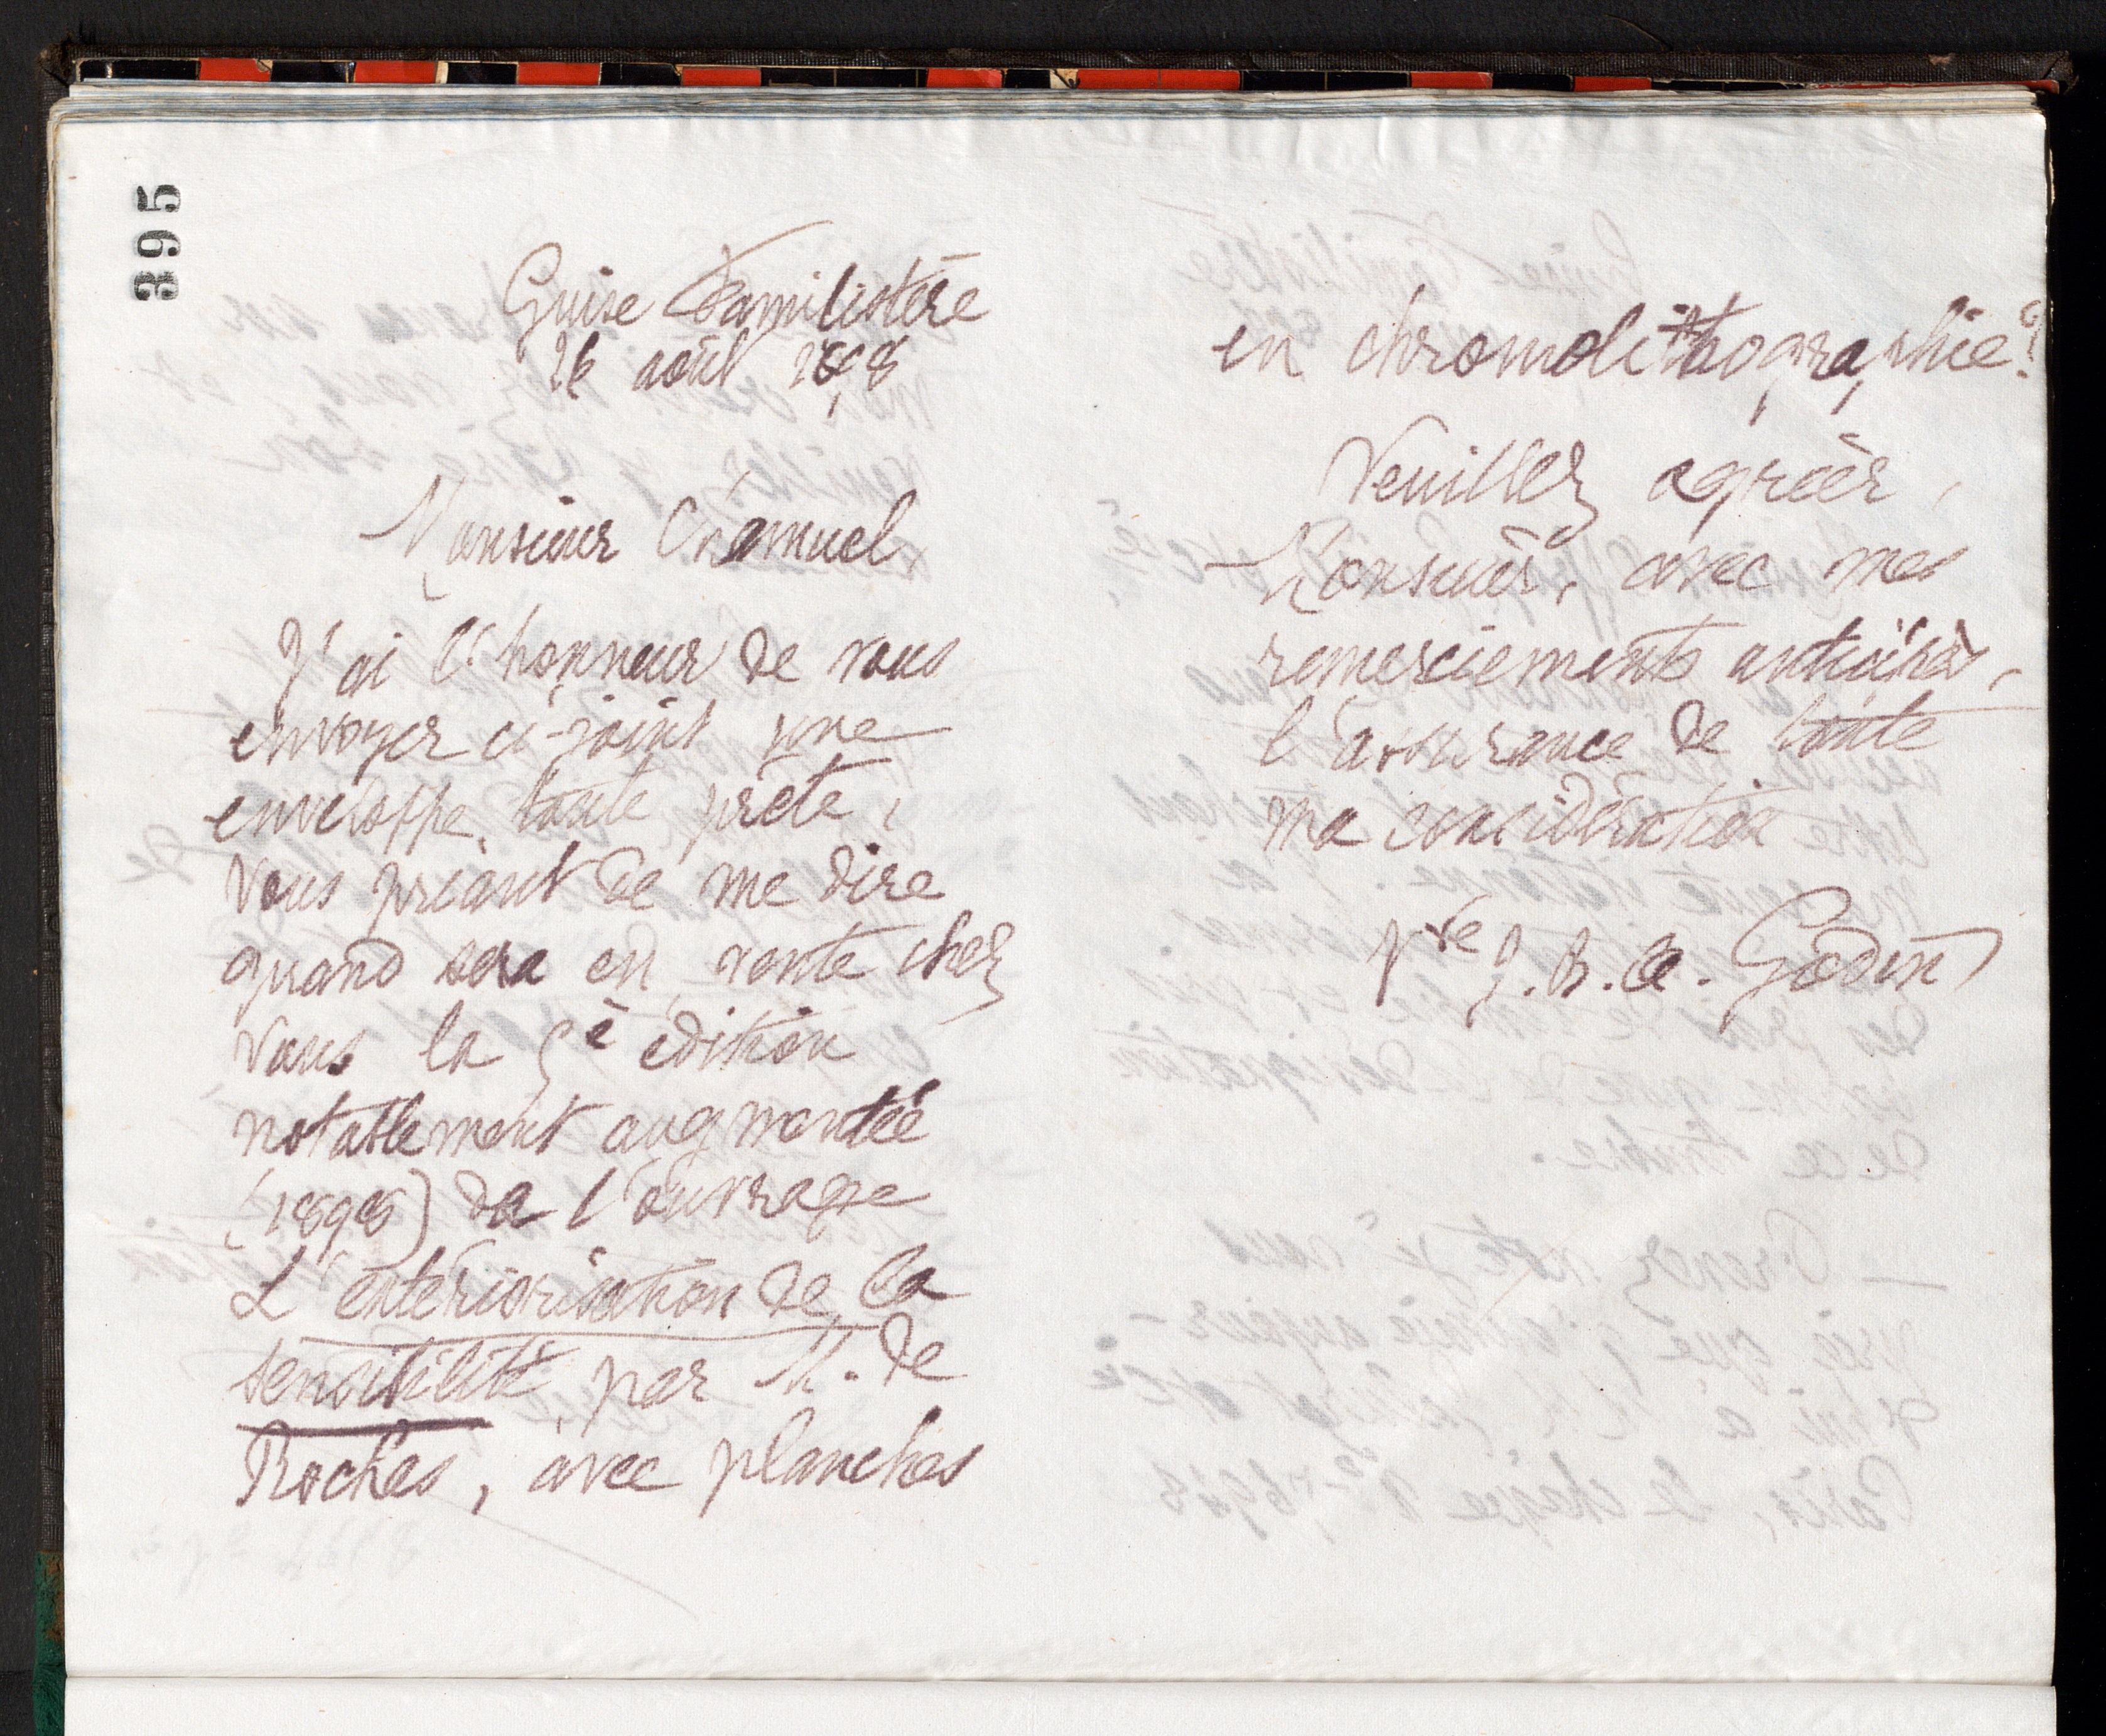 395
Guise Familistère
26 août 1898
Monsieur Chamuel,
J'ai l'honneur de vous
envoyer ci-joint une
enveloppe toute prête,
vous priant de me dire
quand sera en vente chez
vous la 5e édition
notablement augmentée
(1898) de l'ouvrage
L'extériorisation de la
sensibilité, par M. de
Rochas, avec planches
en chromolithographie?
Veuillez agréer,
Monsieur, avec mes
remerciements anticipés,
l'assurance de toute
ma considération
Vve J. B. A. Godin